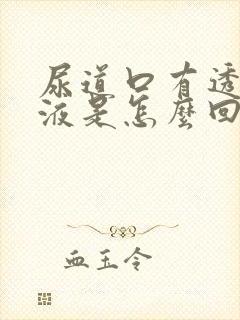 尿道口有透
液是怎麼回
血玉令